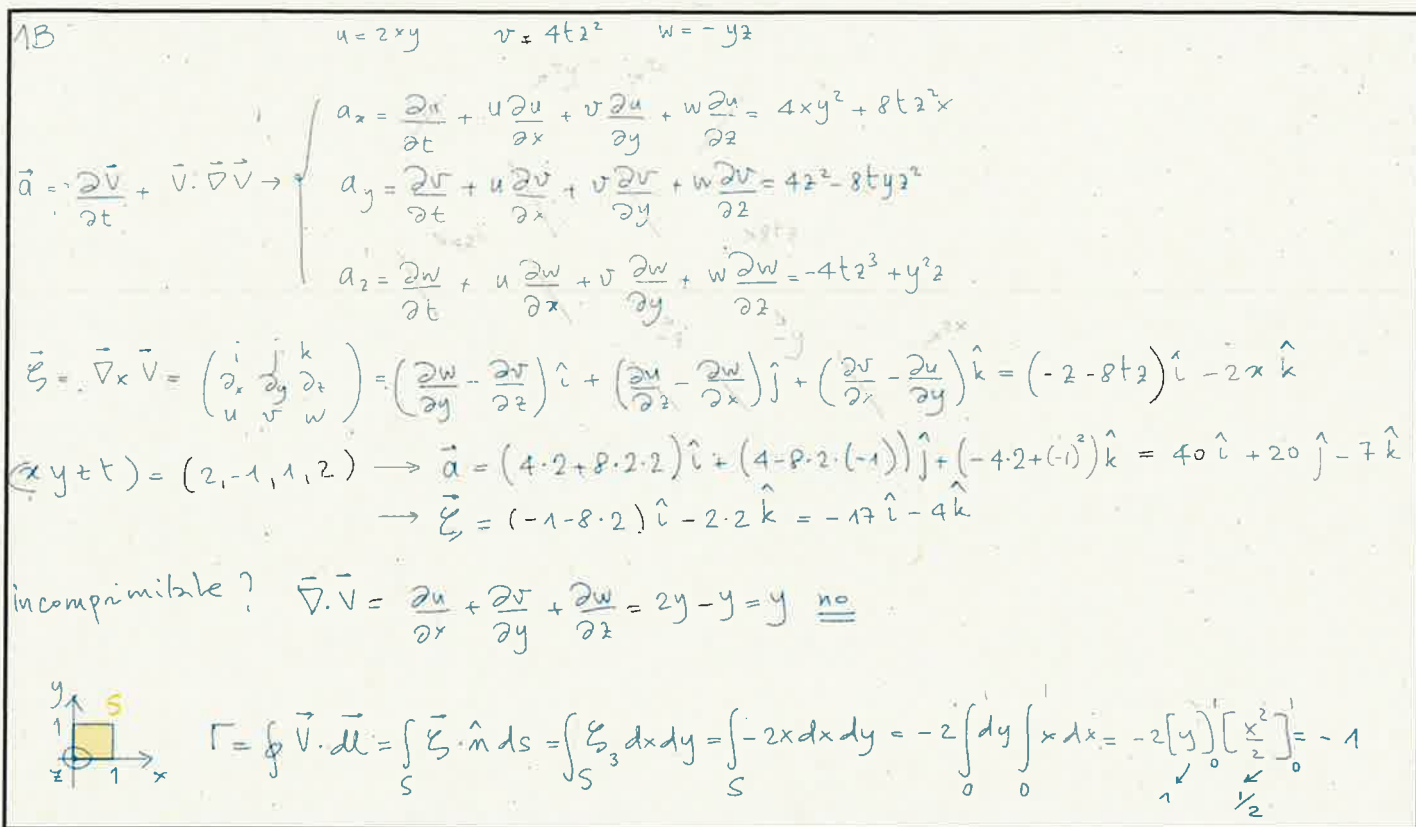 1B
u = 2xy v = 4tz² w = -yz
a_x = ∂u/∂t + u ∂u/∂x + v ∂u/∂y + w ∂u/∂z = 4xy² + 8tz²x
a⃗ = ∂V⃗/∂t + V⃗·∇⃗V⃗ → a_y = ∂v/∂t + u ∂v/∂x + v ∂v/∂y + w ∂v/∂z = 4z² - 8tyz²
a_z = ∂w/∂t + u ∂w/∂x + v ∂w/∂y + w ∂w/∂z = -4tz³ + y²z
ζ⃗ = ∇⃗ × V⃗ = (i j k ∂x ∂y ∂z u v w) = (∂w/∂y - ∂v/∂z) î + (∂u/∂z - ∂w/∂x) ĵ + (∂v/∂x - ∂u/∂y) k̂ = (-z - 8tz) î - 2x k̂
(x y z t) = (2, -1, 1, 2) → a⃗ = (4·2 + 8·2·2) î + (4 - 8·2·(-1)) ĵ + (-4·2 + (-1)²) k̂ = 40 î + 20 ĵ - 7 k̂
→ ζ⃗ = (-1 - 8·2) î - 2·2 k̂ = -17 î - 4 k̂
incomprimibile? ∇⃗·V⃗ = ∂u/∂x + ∂v/∂y + ∂w/∂z = 2y - y = y no
y 1 S z 1 x
Γ = ∮ V⃗·dl⃗ = ∫_S ζ⃗·n̂ ds = ∫_S ζ₃ dx dy = ∫_S -2x dx dy = -2 ∫₀¹ dy ∫₀¹ x dx = -2 [y]₀¹ [x²/2]₀¹ = -1
1 1/2